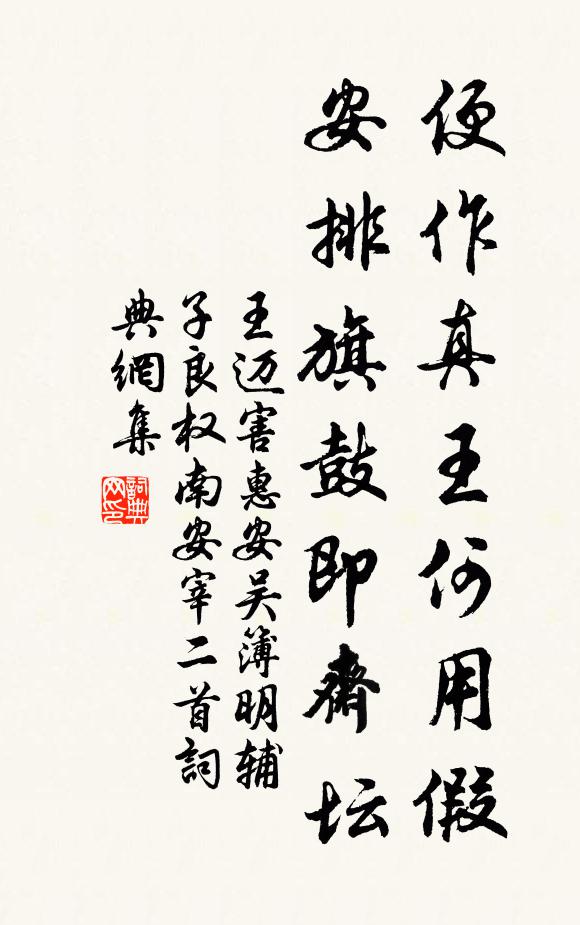 便作真王何用假
安排旗鼓即齋坛
王迈害惠安吴簿明辅
子良权南安宰二首詞
典網集
詞典网印